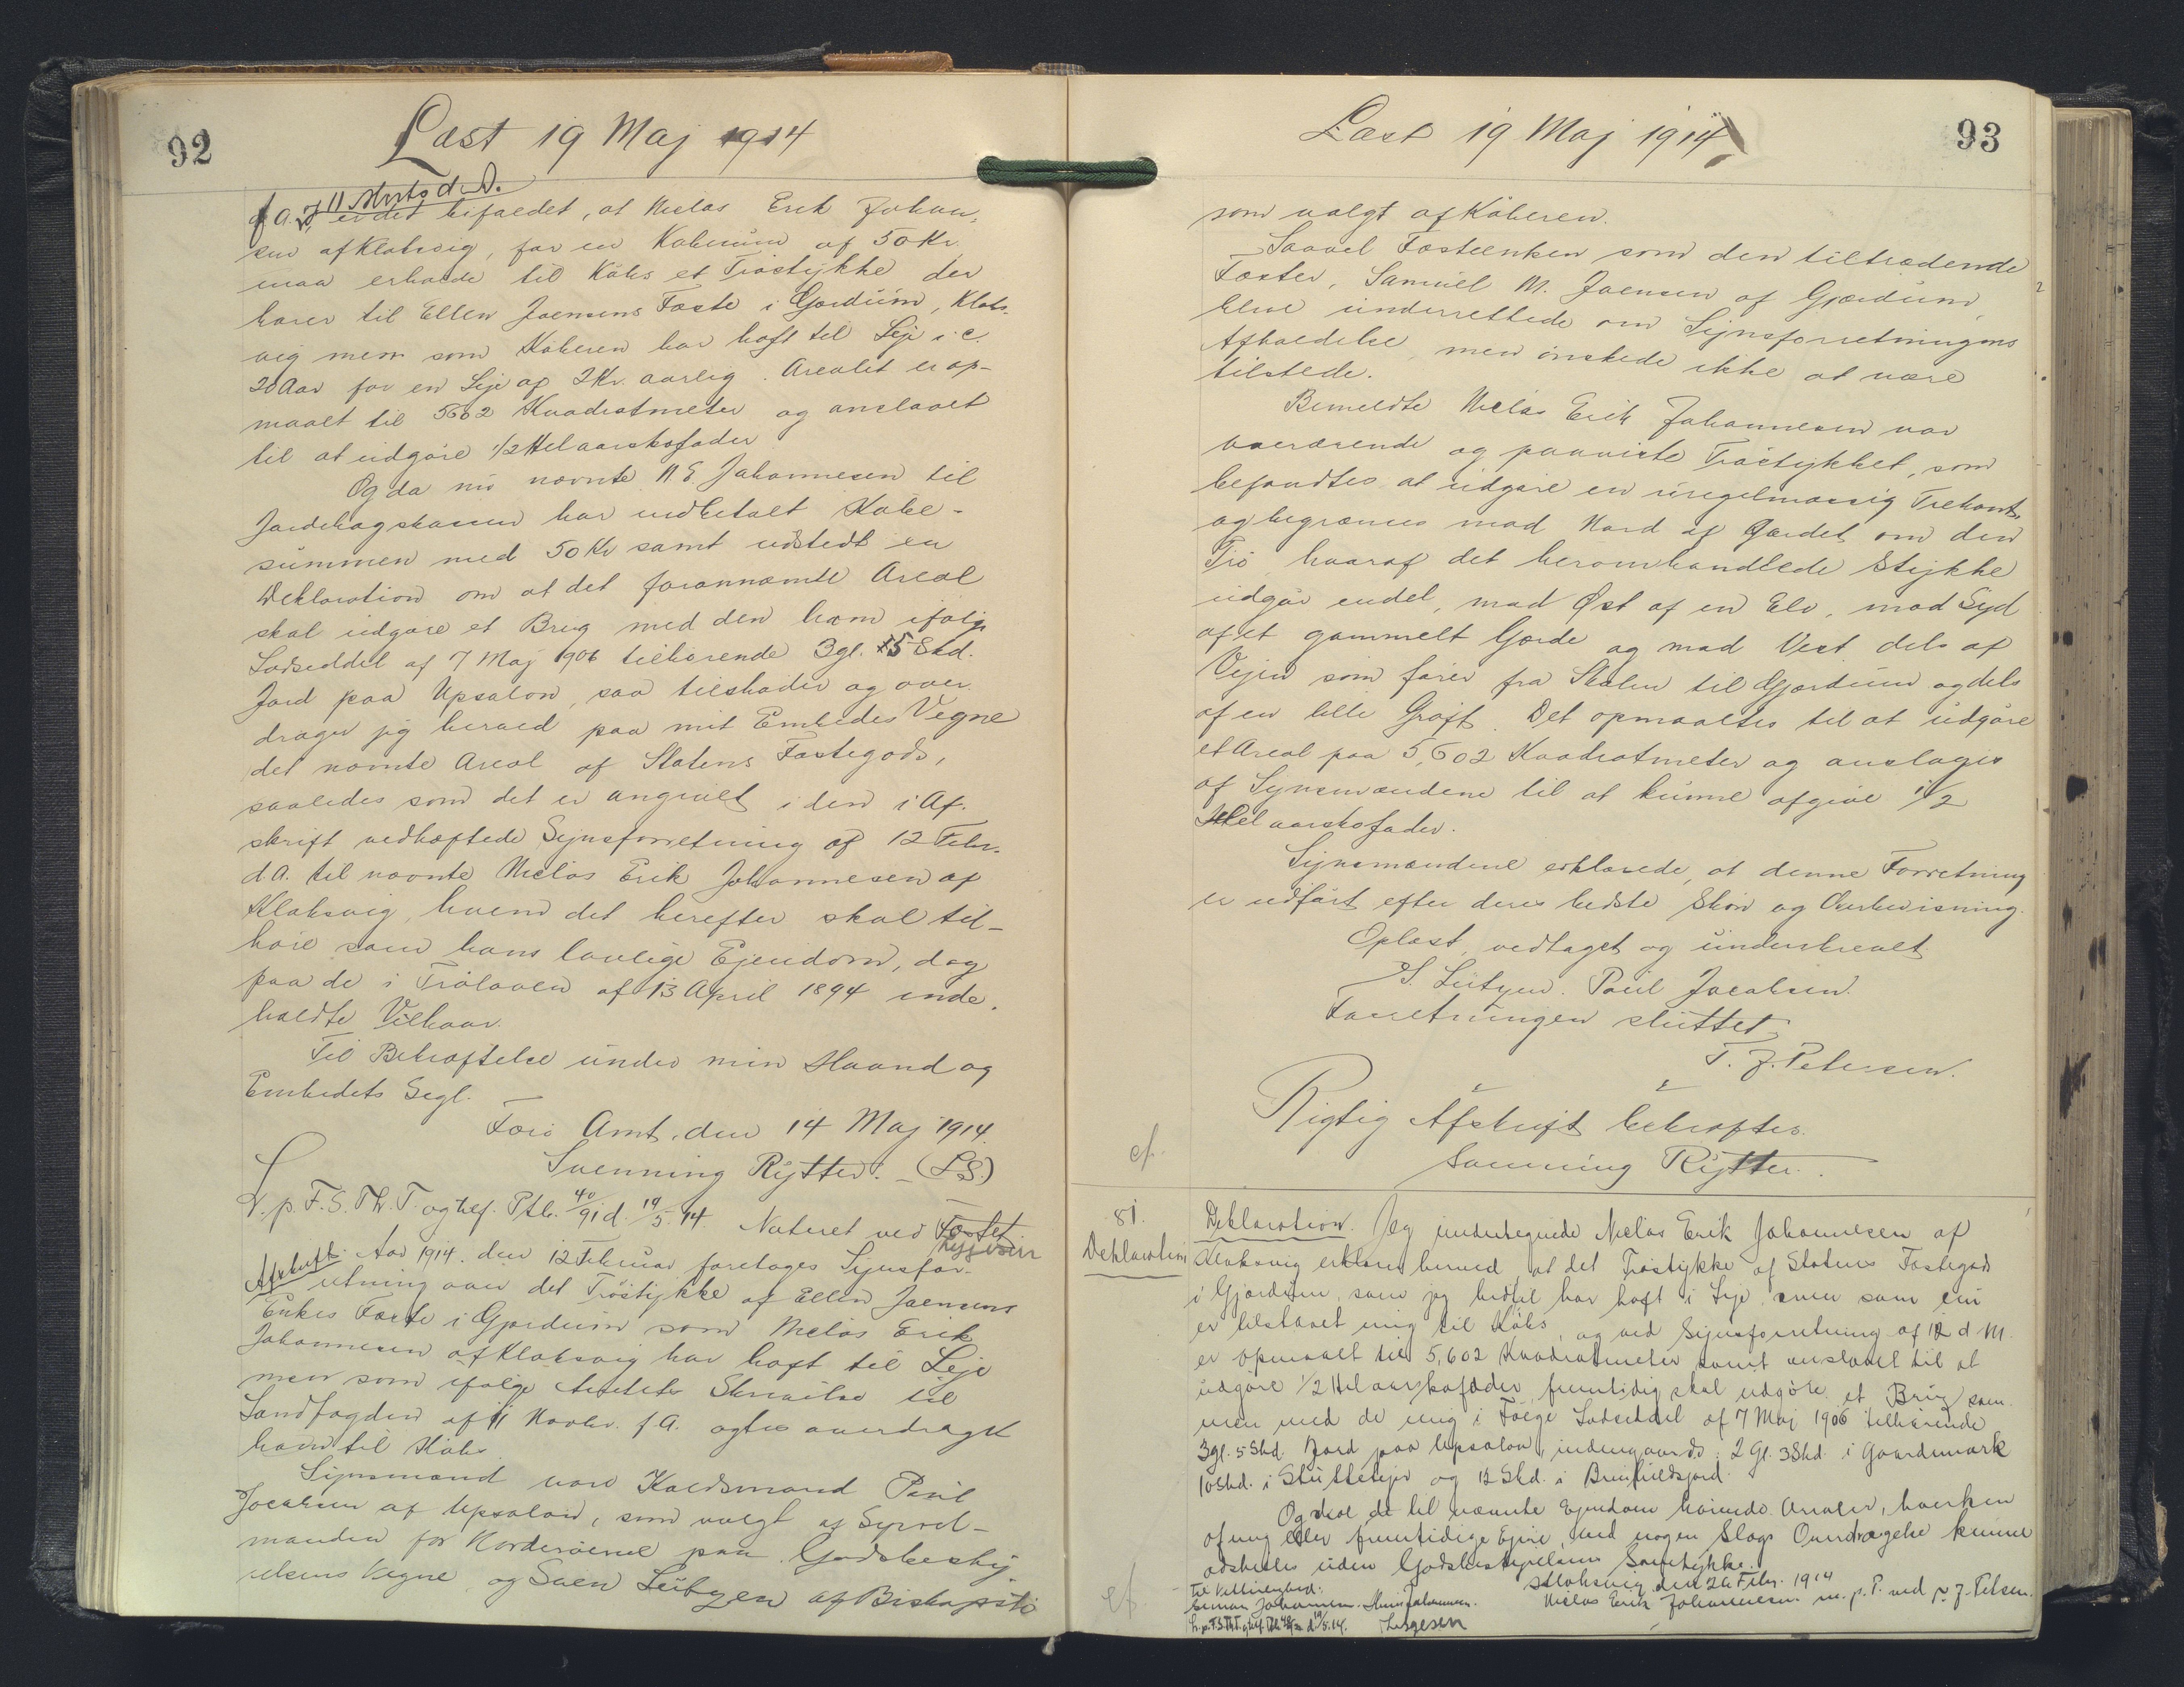 92
Læst 19 Maj 1914
11 Marts d. A.
f. A. er det bifaldet, at Niclas Erik Johan-
sen af Klaksvig, for en Købesum af 50 Kr.
maa erholde til Købs et Trøstykke der
hører til Ellen Joensens Fæste i Gjærdum, Klaks-
vig men som Køberen har haft til Leje i c.
20 Aar for en Leje af 2 Kr. aarlig. Arealet er op-
maalt til 5602 Kvadratmeter og anslaaet
til at udgøre 1/2 Helaarskofoder
Og da nu nævnte N. E. Johannesen til
Jordebogskassen har indbetalt Købe-
summen med 50 Kr samt udstedt en
Deklaration om at det forannævnte Areal
skal udgøre et Brug med den ham ifølge
Lodseddel af 7 Maj 1906 tilhørende 3 gl. 5 Skd.
Jord paa Upsalon, saa tilskøder og over-
drager jeg herved paa mit Embedes Vegne
det nævnte Areal af Statens Fæstegods,
saaledes som det er angivet i den i Af-
skrift vedhæftede Synsforretning af 12 Febr.
d. A. til nævnte Niclas Erik Johannesen af
Klaksvig, hvem det herefter skal til-
høre som hans lovlige Ejendom, dog
paa de i Trøloven af 13 April 1894 inde-
holdte Vilkaar.
Til Bekræftelse under min Haand og
Embedets Segl.
Færø Amt, den 14 Maj 1914.
Svenning Rytter. - (L.S.)
L. p. F. S. Th. T. og hef. Ptb. 40/91 d. 19/5 14. Noteret ved Fæstet
Afskrift. Aar 1914 den 12 Februar foretoges Synsfor-
retning over det Trøstykke af Ellen Joensens
Enkes Fæste i Gjærdum som Niclas Erik
Johannesen af Klaksvig har haft til Leje
men som ifølge Amtets Skrivelse til
Landfogden af 11 Novbr. f. A. agtes overdraget
ham til Købs.
Synsmænd vare Kaldsmand Poul
Jocobsen af Upsalon, som valgt af Syssel-
manden for Norderøerne paa Godsbesty-
relsens Vegne, og Sven Lützen af Biskopstø
93
Læst 19 Maj 1914
som valgt af Køberen.
Saavel Fæsteenken som den tiltrædende
Fæster, Samuel M. Joensen af Gjærdum,
blev underrettede om Synsforretningens
Afholdelse, men ønskede ikke at være
tilstede.
Bemeldte Niclas Erik Johannesen var
nærværende og paaviste Trøstykket, som
befandtes at udgøre en uregelmæssig Trekant,
og begrænses mod Nord af Gærdet om den
Trø, hvoraf det heromhandlede Stykke
udgør endel, mod Øst af en Elv, mod Syd
af et gammelt Gærde og mod Vest dels af
Vejen som fører fra Skolen til Gjærdum og dels
af en lille Grøft. Det opmaaltes til at udgøre
et Areal paa 5,602 Kvadratmeter og ansloges
af Synsmændene til at kunne afgive 1/2
Helaarskofoder.
Synsmændene erklærede, at denne Forretning
er udført efter deres bedste Skøn og Overbevisning.
Oplæst, vedtaget og underskrevet
S. Lützen. Poul Jacobsen.
Forretningen sluttet
T. J. Petersen.
Rigtig Afskrift bekræftes.
Svenning Rytter.
cf.
81.
Deklaration
Deklaration. Jeg undertegnede Niclas Erik Johannesen af
Klaksvig erklærer herved at det Trøstykke af Statens Fæstegods
i Gjærdum, som jeg hidtil har haft i Leje, men som nu
er tilstaaet mig til Købs, og ved Synsforretning af 12 d M.
er opmaalt til 5,602 Kvadratmeter samt anslaaet til at
udgøre 1/2 Helaarskofoder, fremtidig skal udgøre et Brug sam-
men med de mig i Følge Lodseddel af 7 Maj 1906 tilhørende
3 gl. 5 Skd. Jord paa Upsalon, indengaards, 2 Gl. 3 Skd. i Gaardsmark
10 Skd. i og 12 Skd. i
Og skal de til nævnte Ejendom hørende Arealer, hverken
af mig eller fremtidige Ejere, ved nogen Slags Overdragelse kunne
adskilles uden Godsbestyrelsens Samtykke.
Klaksvig, den 26 Febr. 1914
Til Vitterlighed: Niclas Erik Johannesen m. p. P. ved T. J. Petersen.
Simon Johannesen.
cf.